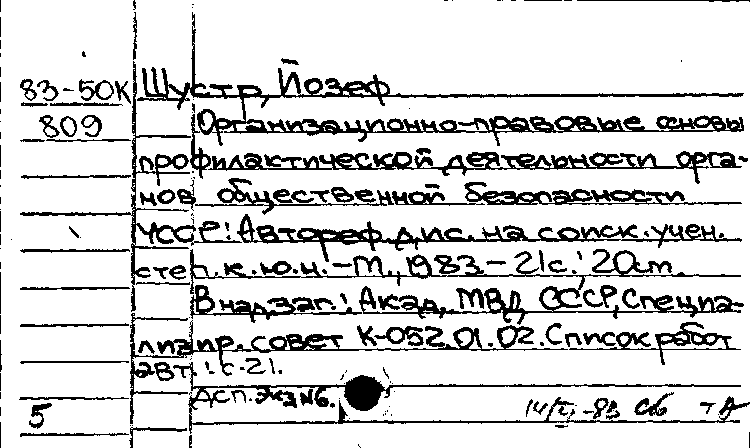 83-50К Шустр, Йозеф
809 Организационно-правовые основы
профилактической деятельности орга-
нов общественной безопасности
ЧССР: Автореф. дис. на соиск. учен.
степ. к.ю.н. - М., 1983. - 21с.; 20см.
В надзаг.: Акад. МВД СССР, Специа-
лизир. совет К-052.01.02. Список работ
авт.: с. 21.
ДСП. Экз №6.
5 -83